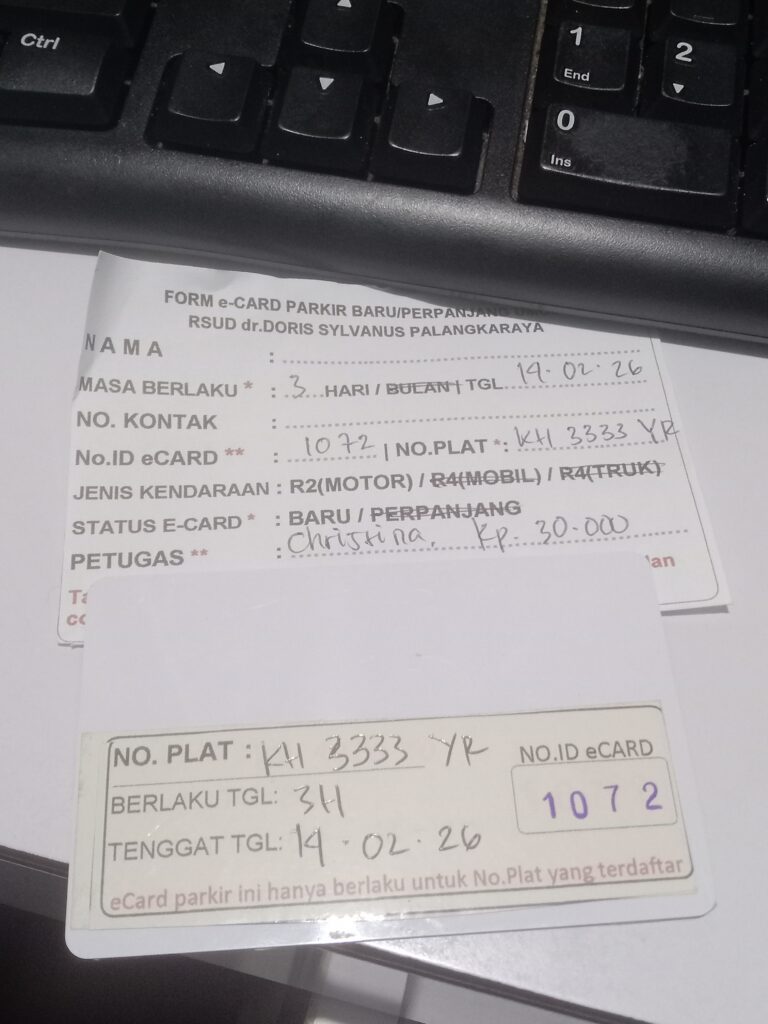 Ctrl
1
End
2
0
Ins
FORM e-CARD PARKIR BARU/PERPANJANG UMUM
RSUD dr.DORIS SYLVANUS PALANGKARAYA
NAMA :
MASA BERLAKU * : 3 HARI / BULAN | TGL 14.02.26
NO. KONTAK :
No.ID eCARD ** : 1072 | NO.PLAT *: KH 3333 YR
JENIS KENDARAAN : R2(MOTOR) / R4(MOBIL) / R4(TRUK)
STATUS E-CARD * : BARU / PERPANJANG
PETUGAS ** : Christina, Rp. 30.000
NO. PLAT : KH 3333 YR
NO.ID eCARD
BERLAKU TGL: 3H
1072
TENGGAT TGL: 14.02.26
eCard parkir ini hanya berlaku untuk No.Plat yang terdaftar